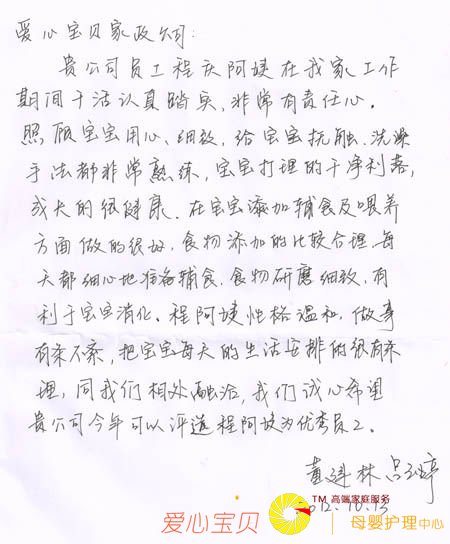 爱心宝贝家政公司:
贵公司员工程庆阿姨在我家工作
期间干活认真踏实,非常有责任心。
照顾宝宝用心、细致,给宝宝抚触、洗澡
手法都非常熟练,宝宝打理的干净利索,
成长的很健康、在宝宝添加辅食及喂养
方面做的很好,食物添加的比较合理,每
天都细心地准备辅食,食物研磨细致,有
利于宝宝消化。程阿姨性格温和,做事
有条不紊,把宝宝每天的生活安排的很有条
理,同我们相处融洽,我们诚心希望
贵公司今年可以评选程阿姨为优秀员工。
黄 林 婷
2012.10.13
TM 高端家庭服务
爱心宝贝 母婴护理中心